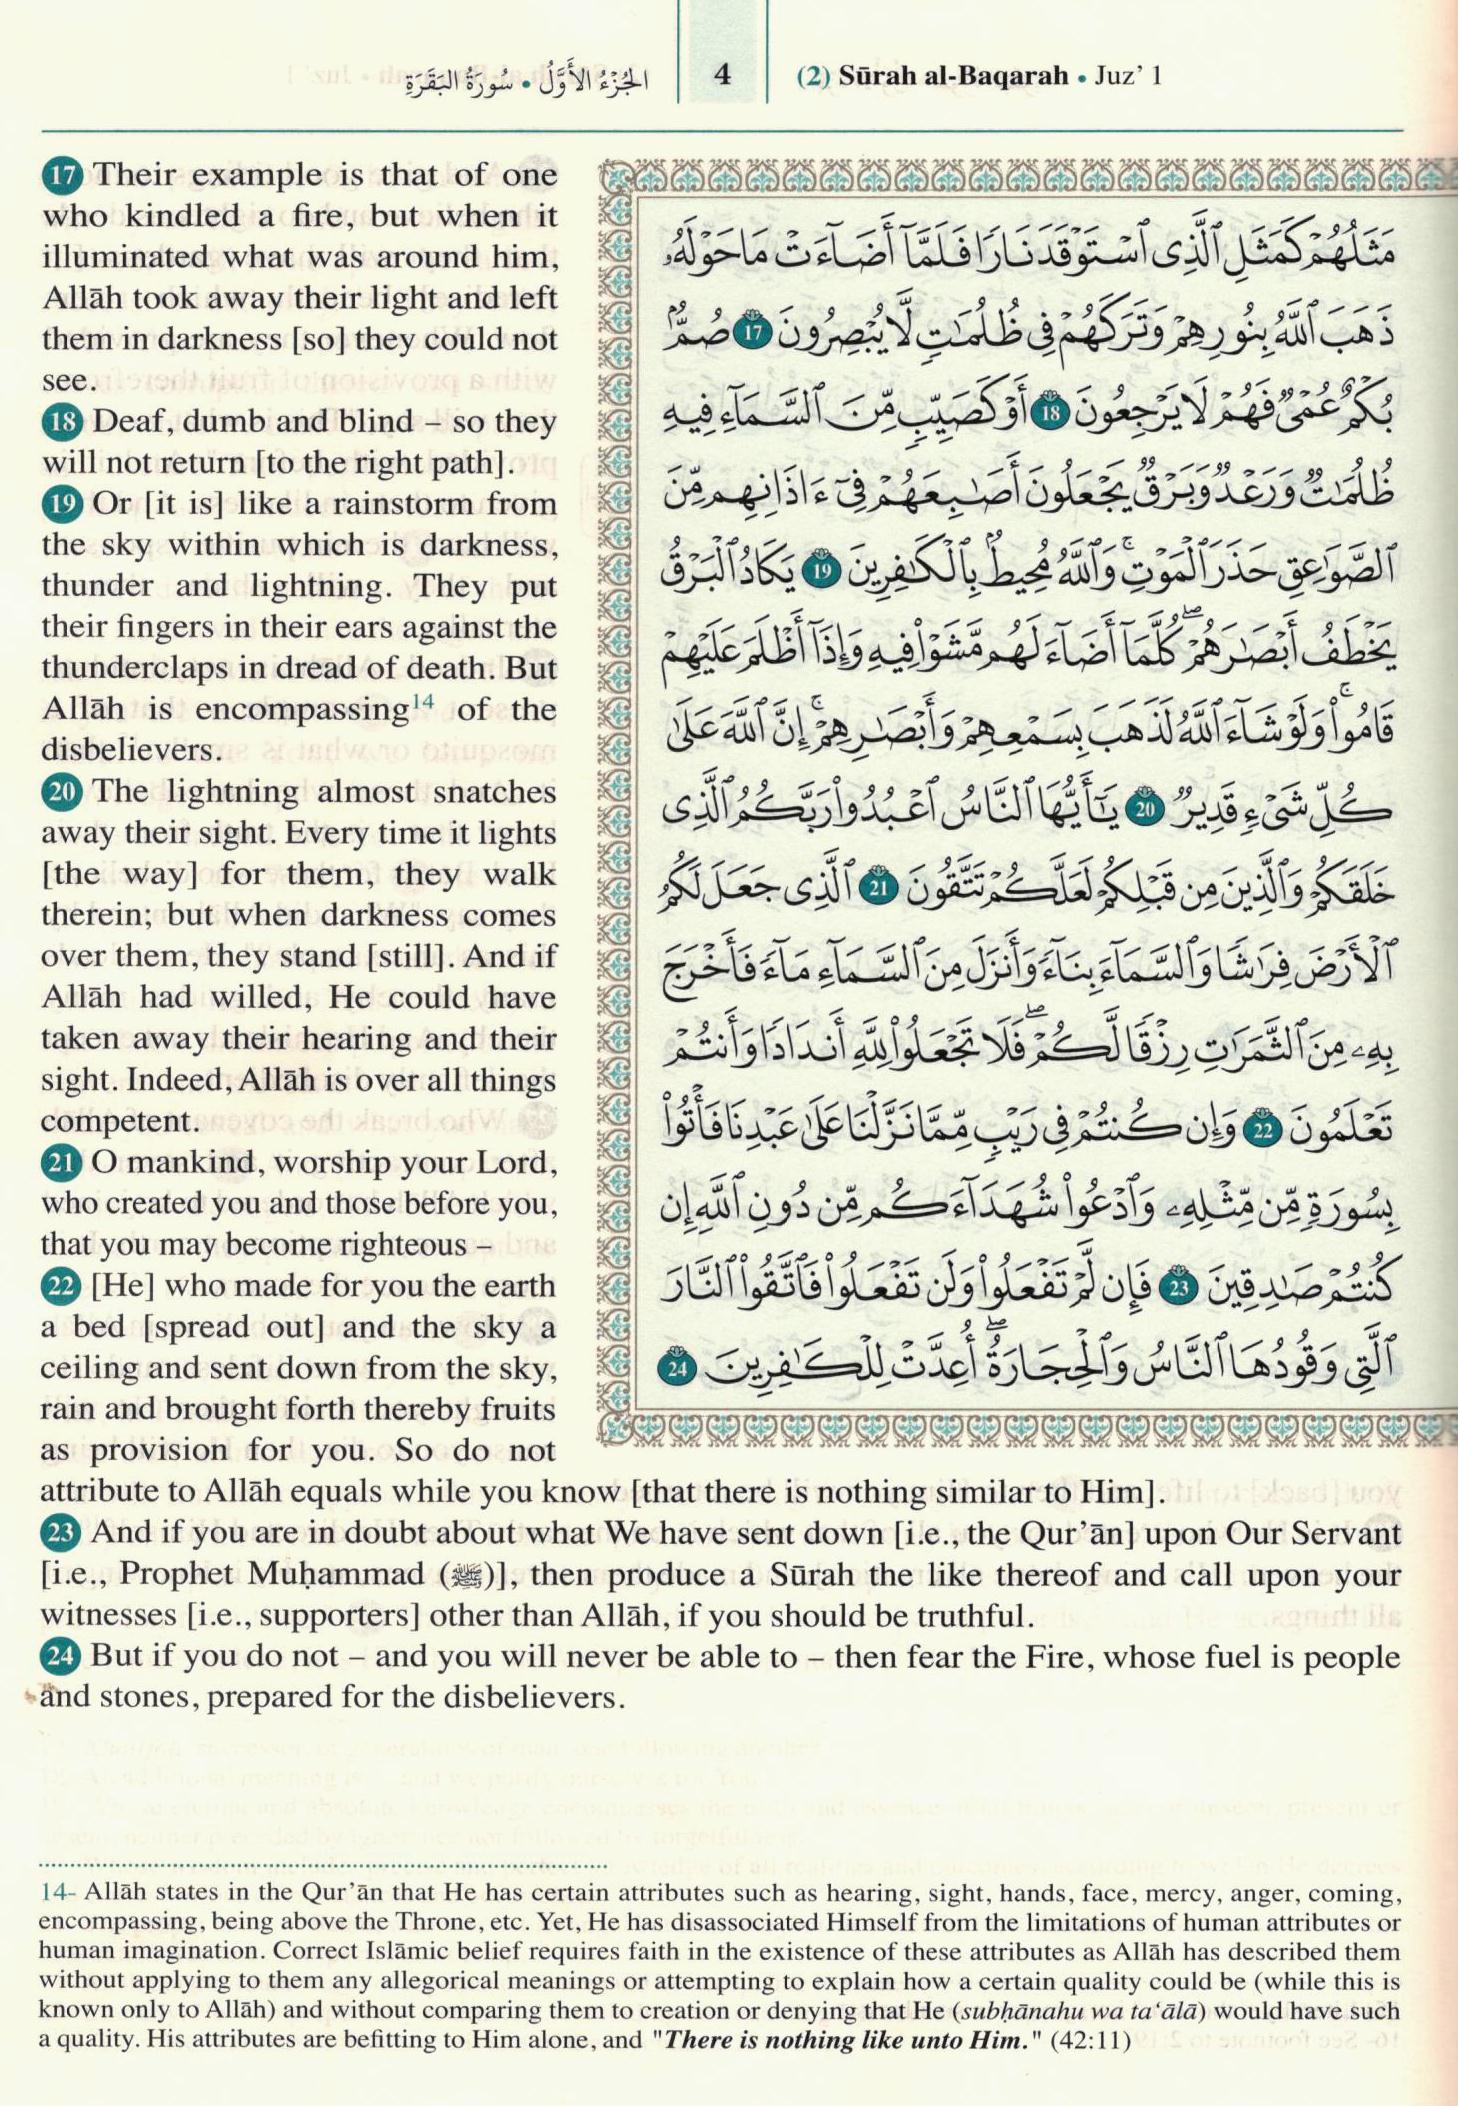 الجُزْءُ الأَوَّلُ • سُورَةُ البَقَرَةِ
4
(2) Sūrah al-Baqarah • Juz’ 1
17 Their example is that of one
who kindled a fire, but when it
illuminated what was around him,
Allāh took away their light and left
them in darkness [so] they could not
see.
18 Deaf, dumb and blind – so they
will not return [to the right path].
19 Or [it is] like a rainstorm from
the sky within which is darkness,
thunder and lightning. They put
their fingers in their ears against the
thunderclaps in dread of death. But
Allāh is encompassing14 of the
disbelievers.
20 The lightning almost snatches
away their sight. Every time it lights
[the way] for them, they walk
therein; but when darkness comes
over them, they stand [still]. And if
Allāh had willed, He could have
taken away their hearing and their
sight. Indeed, Allāh is over all things
competent.
21 O mankind, worship your Lord,
who created you and those before you,
that you may become righteous –
22 [He] who made for you the earth
a bed [spread out] and the sky a
ceiling and sent down from the sky,
rain and brought forth thereby fruits
as provision for you. So do not
attribute to Allāh equals while you know [that there is nothing similar to Him].
23 And if you are in doubt about what We have sent down [i.e., the Qur’ān] upon Our Servant
[i.e., Prophet Muḥammad (ﷺ)], then produce a Sūrah the like thereof and call upon your
witnesses [i.e., supporters] other than Allāh, if you should be truthful.
24 But if you do not – and you will never be able to – then fear the Fire, whose fuel is people
and stones, prepared for the disbelievers.
مَثَلُهُمْ كَمَثَلِ ٱلَّذِى ٱسْتَوْقَدَ نَارًا فَلَمَّآ أَضَآءَتْ مَا حَوْلَهُۥ
ذَهَبَ ٱللَّهُ بِنُورِهِمْ وَتَرَكَهُمْ فِى ظُلُمَٰتٍ لَّا يُبْصِرُونَ 17 صُمٌّۢ
بُكْمٌ عُمْىٌ فَهُمْ لَا يَرْجِعُونَ 18 أَوْ كَصَيِّبٍ مِّنَ ٱلسَّمَآءِ فِيهِ
ظُلُمَٰتٌ وَرَعْدٌ وَبَرْقٌ يَجْعَلُونَ أَصَٰبِعَهُمْ فِىٓ ءَاذَانِهِم مِّنَ
ٱلصَّوَٰعِقِ حَذَرَ ٱلْمَوْتِ ۚ وَٱللَّهُ مُحِيطٌۢ بِٱلْكَٰفِرِينَ 19 يَكَادُ ٱلْبَرْقُ
يَخْطَفُ أَبْصَٰرَهُمْ ۖ كُلَّمَآ أَضَآءَ لَهُم مَّشَوْا۟ فِيهِ وَإِذَآ أَظْلَمَ عَلَيْهِمْ
قَامُوا۟ ۚ وَلَوْ شَآءَ ٱللَّهُ لَذَهَبَ بِسَمْعِهِمْ وَأَبْصَٰرِهِمْ ۚ إِنَّ ٱللَّهَ عَلَىٰ
كُلِّ شَىْءٍ قَدِيرٌ 20 يَٰٓأَيُّهَا ٱلنَّاسُ ٱعْبُدُوا۟ رَبَّكُمُ ٱلَّذِى
خَلَقَكُمْ وَٱلَّذِينَ مِن قَبْلِكُمْ لَعَلَّكُمْ تَتَّقُونَ 21 ٱلَّذِى جَعَلَ لَكُمُ
ٱلْأَرْضَ فِرَٰشًا وَٱلسَّمَآءَ بِنَآءً وَأَنزَلَ مِنَ ٱلسَّمَآءِ مَآءً فَأَخْرَجَ
بِهِۦ مِنَ ٱلثَّمَرَٰتِ رِزْقًا لَّكُمْ ۖ فَلَا تَجْعَلُوا۟ لِلَّهِ أَندَادًا وَأَنتُمْ
تَعْلَمُونَ 22 وَإِن كُنتُمْ فِى رَيْبٍ مِّمَّا نَزَّلْنَا عَلَىٰ عَبْدِنَا فَأْتُوا۟
بِسُورَةٍ مِّن مِّثْلِهِۦ وَٱدْعُوا۟ شُهَدَآءَكُم مِّن دُونِ ٱللَّهِ إِن
كُنتُمْ صَٰدِقِينَ 23 فَإِن لَّمْ تَفْعَلُوا۟ وَلَن تَفْعَلُوا۟ فَٱتَّقُوا۟ ٱلنَّارَ
ٱلَّتِى وَقُودُهَا ٱلنَّاسُ وَٱلْحِجَارَةُ ۖ أُعِدَّتْ لِلْكَٰفِرِينَ 24
14- Allāh states in the Qur’ān that He has certain attributes such as hearing, sight, hands, face, mercy, anger, coming,
encompassing, being above the Throne, etc. Yet, He has disassociated Himself from the limitations of human attributes or
human imagination. Correct Islāmic belief requires faith in the existence of these attributes as Allāh has described them
without applying to them any allegorical meanings or attempting to explain how a certain quality could be (while this is
known only to Allāh) and without comparing them to creation or denying that He (subḥānahu wa ta‘ālā) would have such
a quality. His attributes are befitting to Him alone, and "There is nothing like unto Him." (42:11)